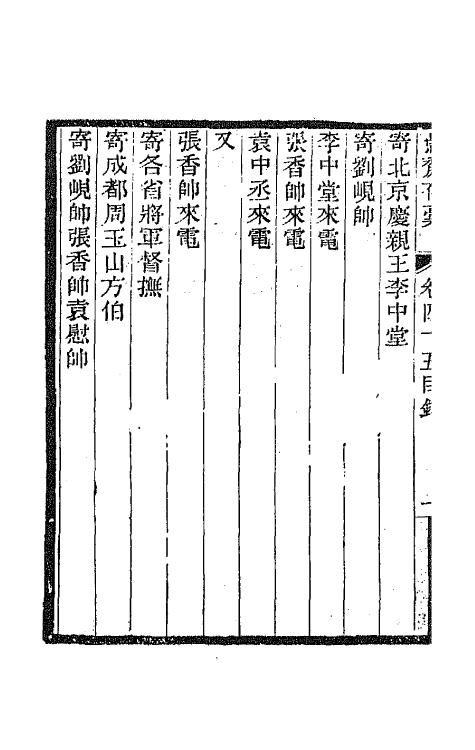 卷四十五目錄 一
寄北京慶親王李中堂
寄劉峴帥
李中堂來電
張香帥來電
袁中丞來電
又
張香帥來電
寄各省將軍督撫
寄成都周玉山方伯
寄劉峴帥張香帥袁慰帥